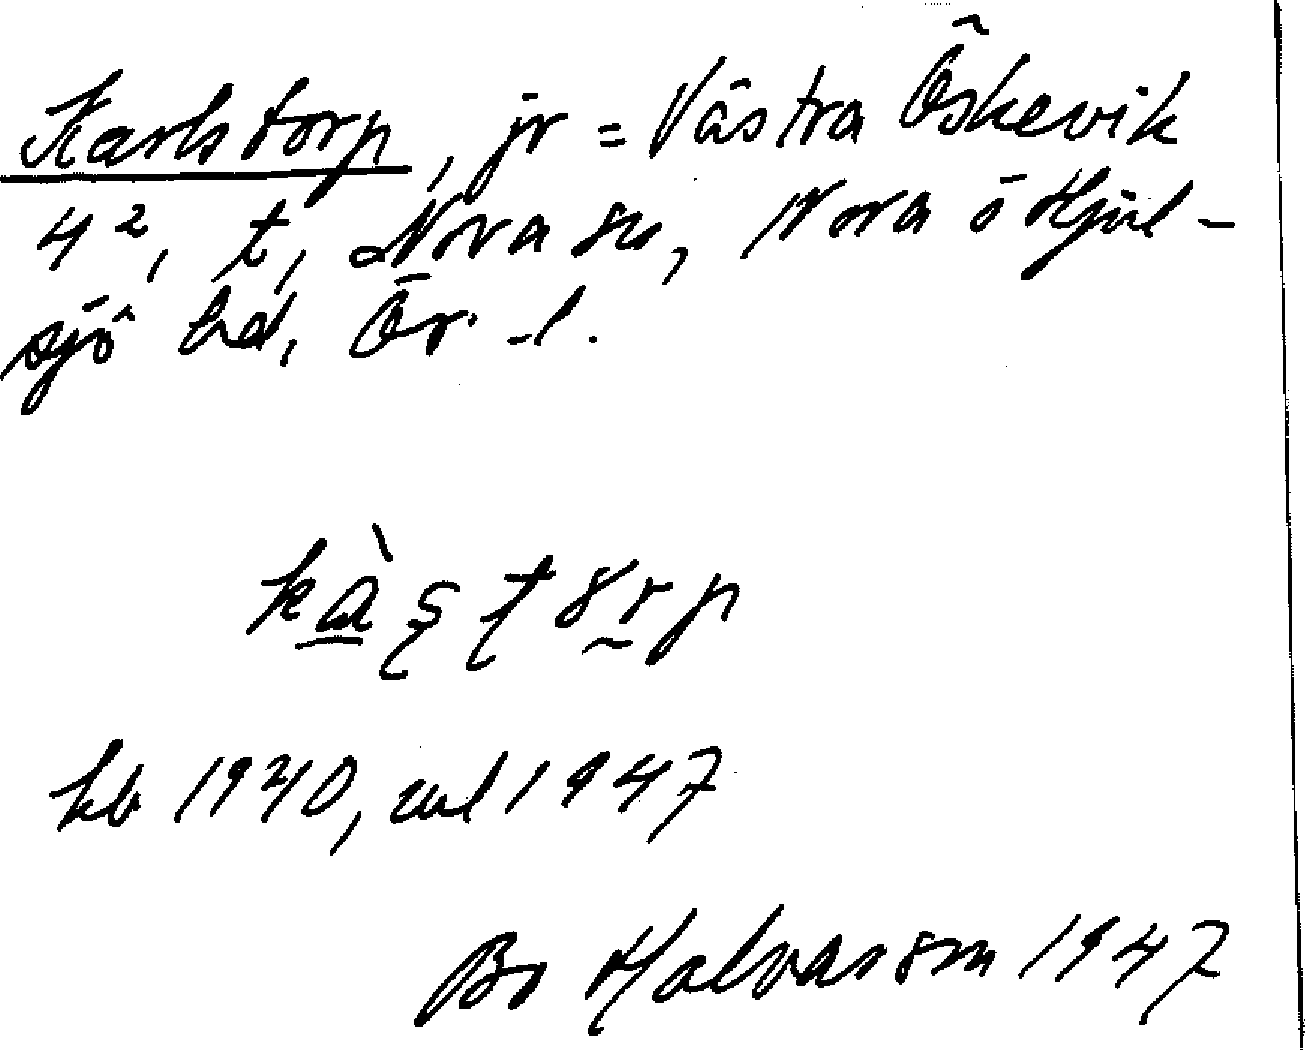 Karlstorp, jr = Västra Öskevik
4², t, Nora sn, Nora ö Hjul-
sjö hd, Ör. l.
kb 1940, ml 1947
Bo Halvarson 1947